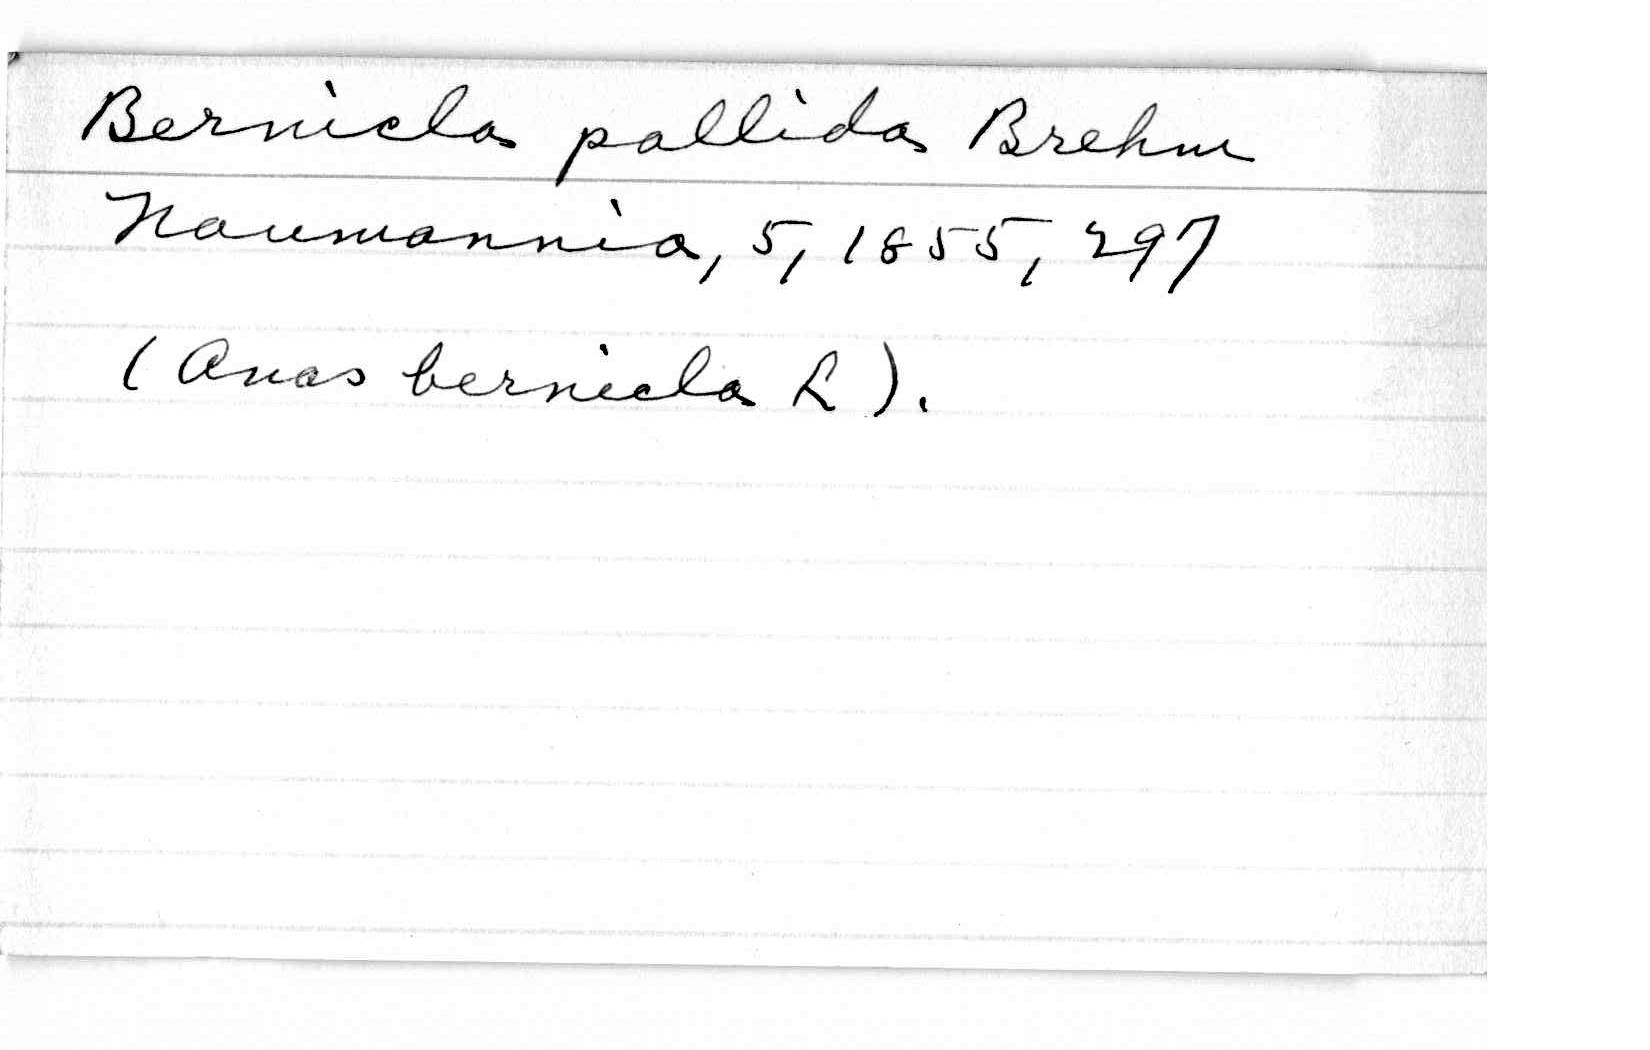 Bernicla pallida Brehm
Naumannia, 5, 1855, 297
(Anas bernicla L).